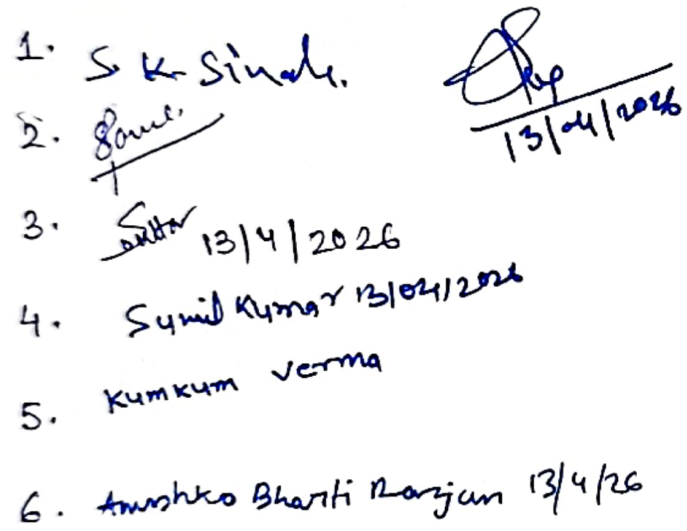 1. S. K. Sinah.
2.
13/04/2026
3. 13/4/2026
4. Sunil Kumar 13/04/2026
5. Kumkum Verma
6. Anushka Bharti Ranjan 13/4/26